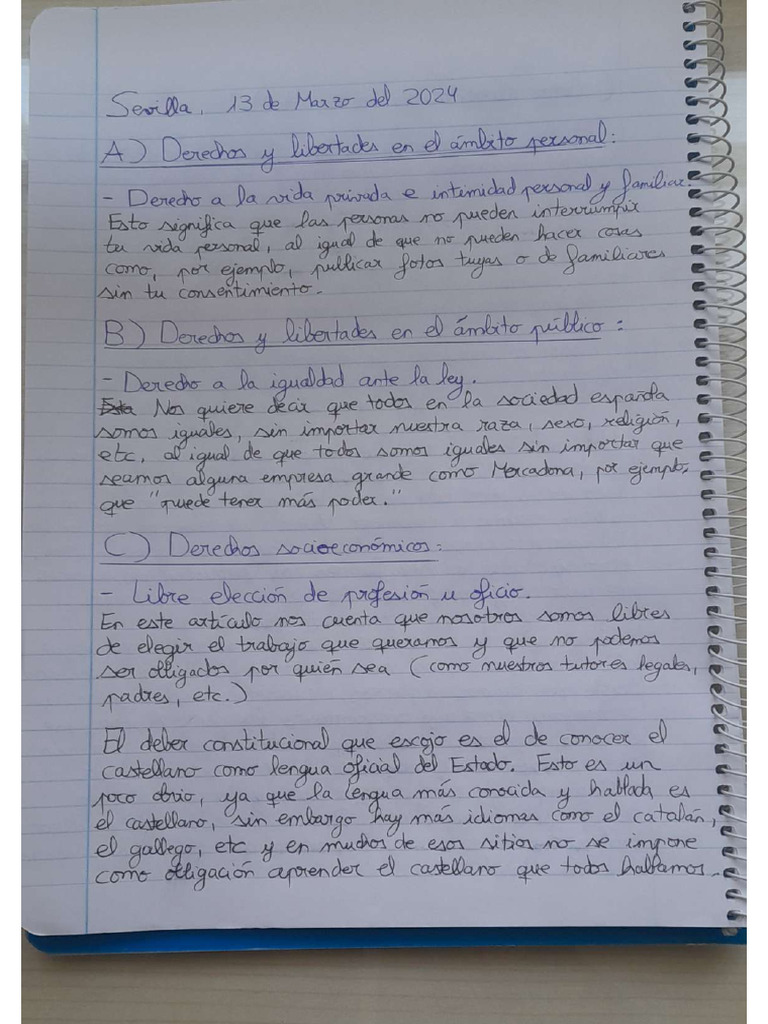 Sevilla, 13 de Marzo del 2024
A) Derechos y libertades en el ámbito personal:
- Derecho a la vida privada e intimidad personal y familiar.
Esto significa que las personas no pueden interrumpir
tu vida personal, al igual de que no pueden hacer cosas
como, por ejemplo, publicar fotos tuyas o de familiares
sin tu consentimiento.
B) Derechos y libertades en el ámbito público:
- Derecho a la igualdad ante la ley.
Esta Nos quiere decir que todos en la sociedad española
somos iguales, sin importar nuestra raza, sexo, religión,
etc, al igual de que todos somos iguales sin importar que
seamos alguna empresa grande como Mercadona, por ejemplo,
que "puede tener más poder."
C) Derechos socioeconómicos:
- Libre elección de profesión u oficio.
En este artículo nos cuenta que nosotros somos libres
de elegir el trabajo que queramos y que no podemos
ser obligados por quién sea (como nuestros tutores legales,
padres, etc.)
El deber constitucional que escojo es el de conocer el
castellano como lengua oficial del Estado. Esto es un
poco obvio, ya que la lengua más conocida y hablada es
el castellano, sin embargo hay más idiomas como el catalán,
el gallego, etc y en muchos de esos sitios no se impone
como obligación aprender el castellano que todos hablamos.